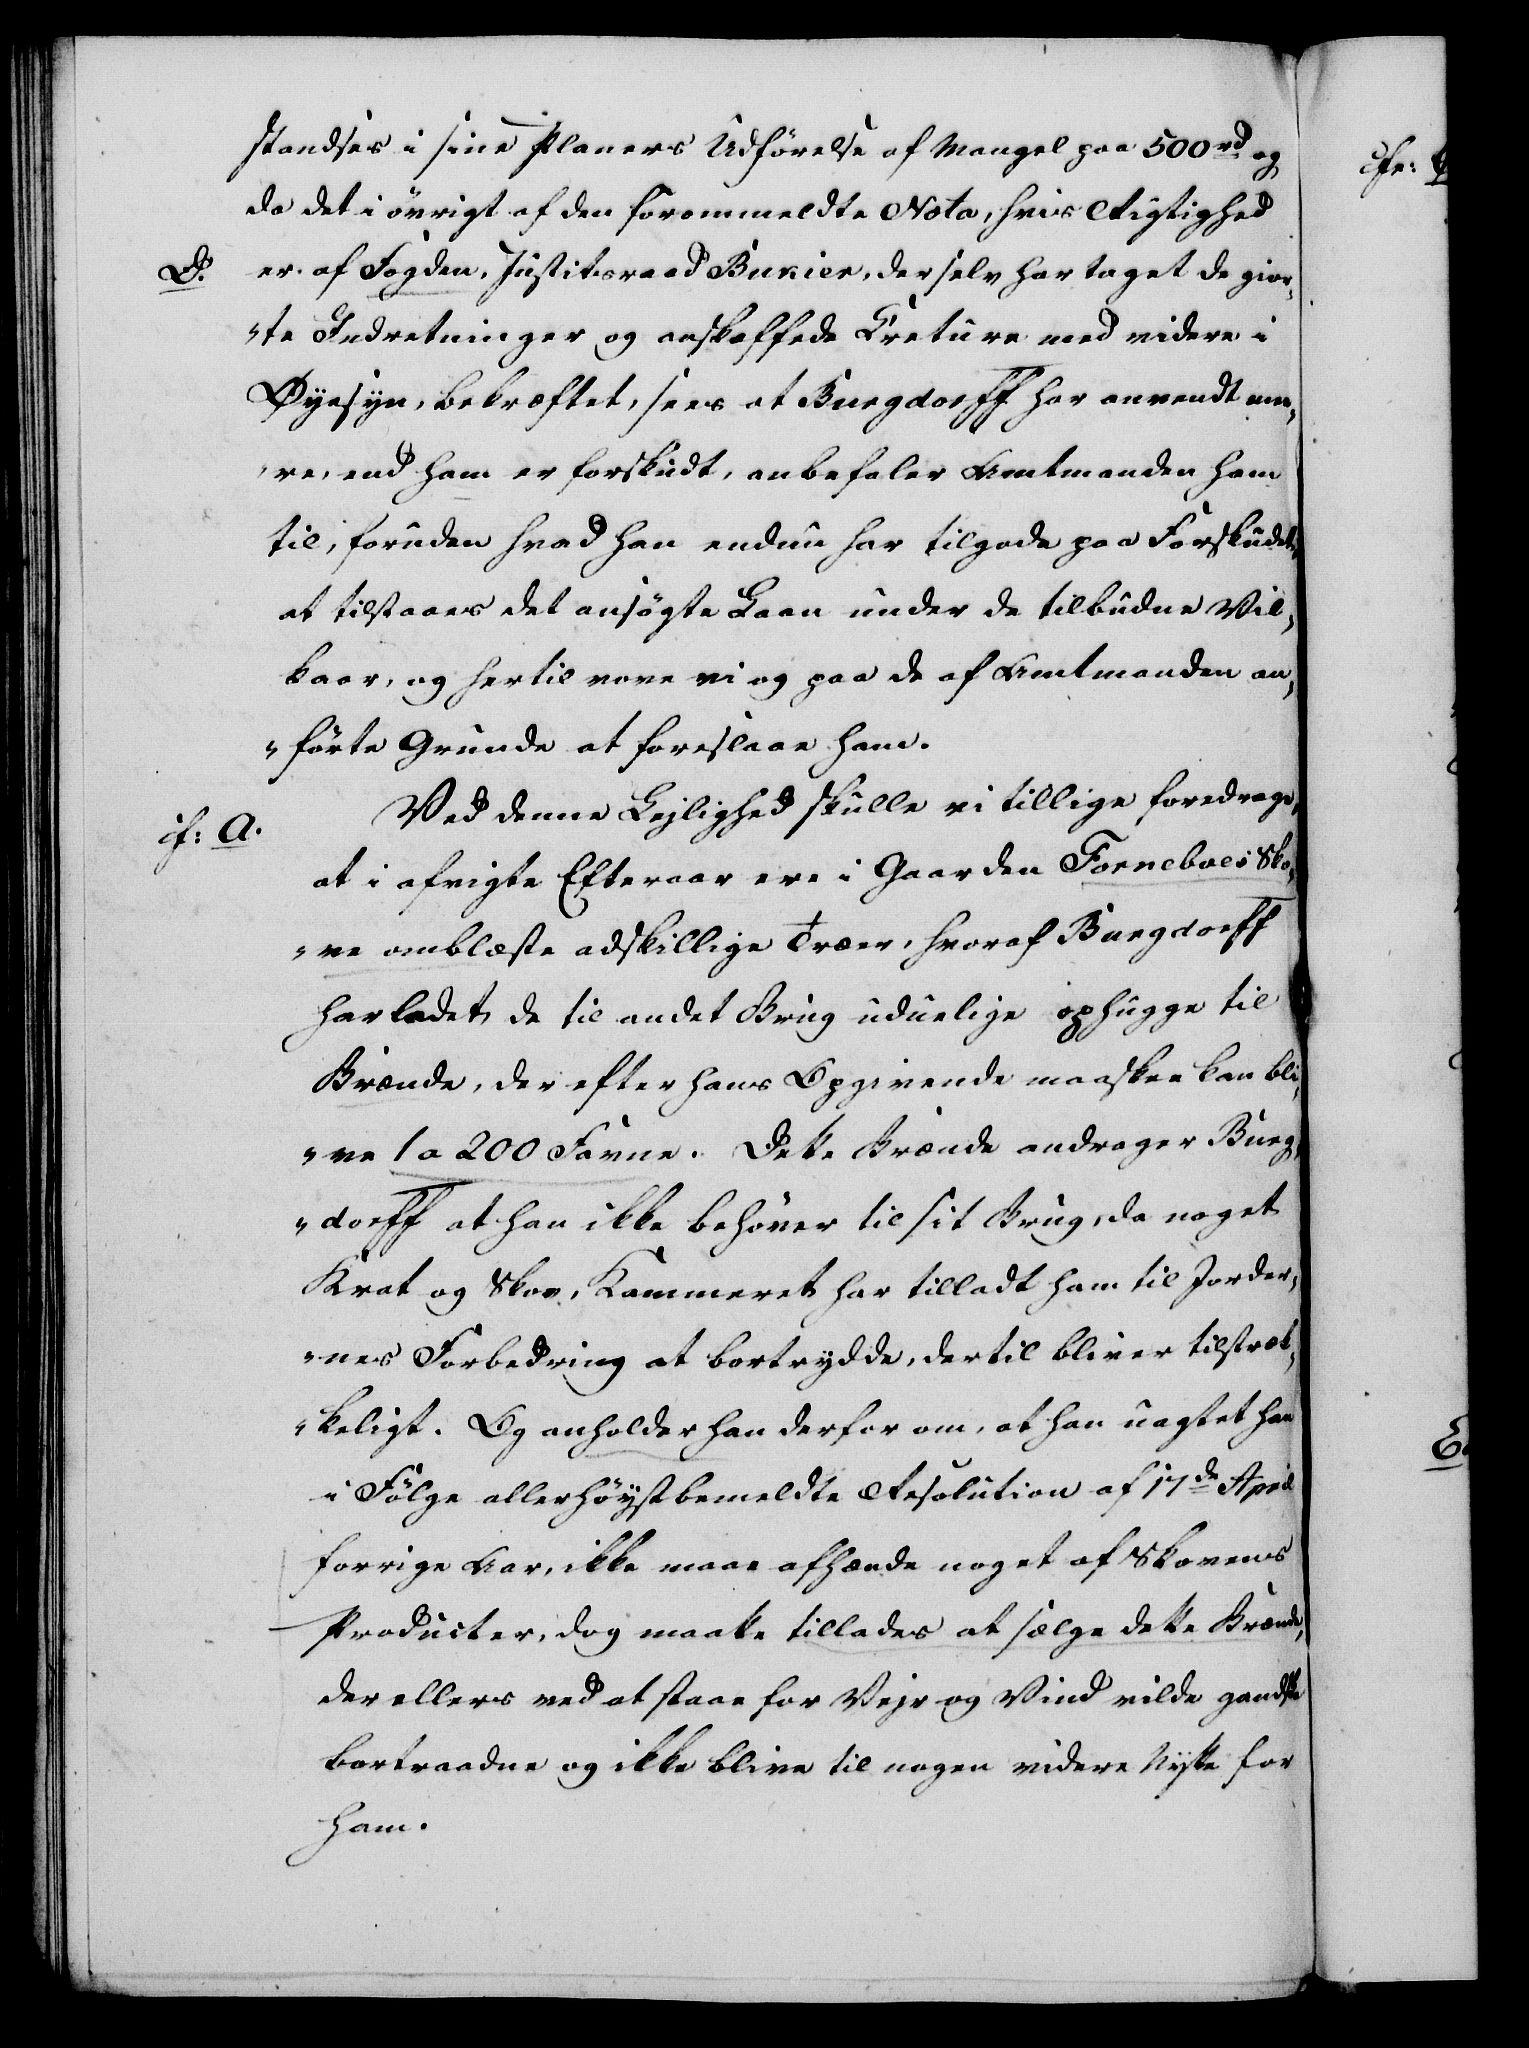 standses i sine Planers Udförelse af Mangel paa 500 rd og
da det i övrigt af den forommeldte Nota, hvis Rigtighed
D. er af Fogden, Justitsraad Bukier, der selv har taget de gior„
„te Indretninger og anskaffede Creture med videre i
Øyesyn, bekræftet, sees at Burgdorff har anvendt me„
„re, end ham er forskudt, anbefaler Amtmanden ham
til, foruden hvad han endnu har tilgode paa Forskudet,
at tilstaaes det ansögte Laan under de tilbudne Vil„
kaar, og hertil vove vi og paa de af Amtmanden an„
„förte Grunde at foreslaae ham.
cf: A. Ved denne Lejlighed skulle vi tillige foredrage,
at i afvigte Efteraar ere i Gaarden Forneboes Sko„
„ve omblæste adskillige Træer, hvoraf Burgdorff
har ladet de til andet Brug uduelige ophugge til
Brænde, der efter hans Opgivende maaskee kan bli„
„ve 1 a 200 Favne. Dette Brænde andrager Burg„
„dorff at han ikke behöver til sit Brug, da noget
Krat og Skov, Kammeret har tilladt ham til Jorder„
„nes Forbedring at bortrydde, dertil bliver tilstræk„
„keligt. Og anholder han derfor om, at han uagtet han
i Fölge allerhöystbemeldte Resolution af 17de April
forrige Aar, ikke maae afhænde noget af Skovens
Producter, dog maatte tillades at sælge dette Brænde,
der ellers ved at staae for Vejr og Vind vilde gandske
bortraadne og ikke blive til nogen videre Nytte for
ham.